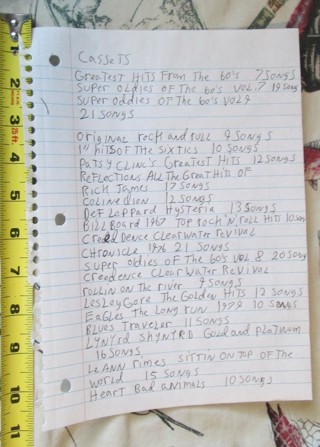 CASSETS
GREATEST HITS FROM The 60's 7 SONGS
SUPER OLDIES OF The 60's VOL.7 19 SONG
SUPER Oddies OF The 60's VOL 9
21 SONGS
ORIGINAL ROCK and ROLL 9 SONGS
1" hITS OF The SIXTIES 10 SONGS
PATSY CLINC'S GREATEST HITS 12 SONGS
REFLECTIONS ALL The GREAT HITS OF
RICK JAMES 17 SONGS
COLINE DION 12 SONGS
DEF LAPPARD HYSTERIA 13 SONGS
BILL BOARD 1967 TOP ROCK'N ROLL HITS 10 SONG
CREEDENCE CLEARWATER REVIVAL
CHRONICLE 1976 21 SONGS
SUPER OLDIES OF The 60'S VOL 8 20 SONG
CREEDENCE CLEARWATER REVIVAL
ROLLIN ON THE RIVER 9 SONGS
LESLEY GORE The GOLDEN HITS 12 SONGS
EAGLES The LONG RUN 1979 10 SONGS
BLUES TRAVELER 11 SONGS
LYNYRD SHYNYRD GOLD and PLATINUM
16 SONGS
LEANN RIMES SITTIN ON TOP OF THE
WORLD 15 SONGS
HEART Bad ANIMALS 10 SONGS
1
2
3
4
5
6
7
8
9
10
11